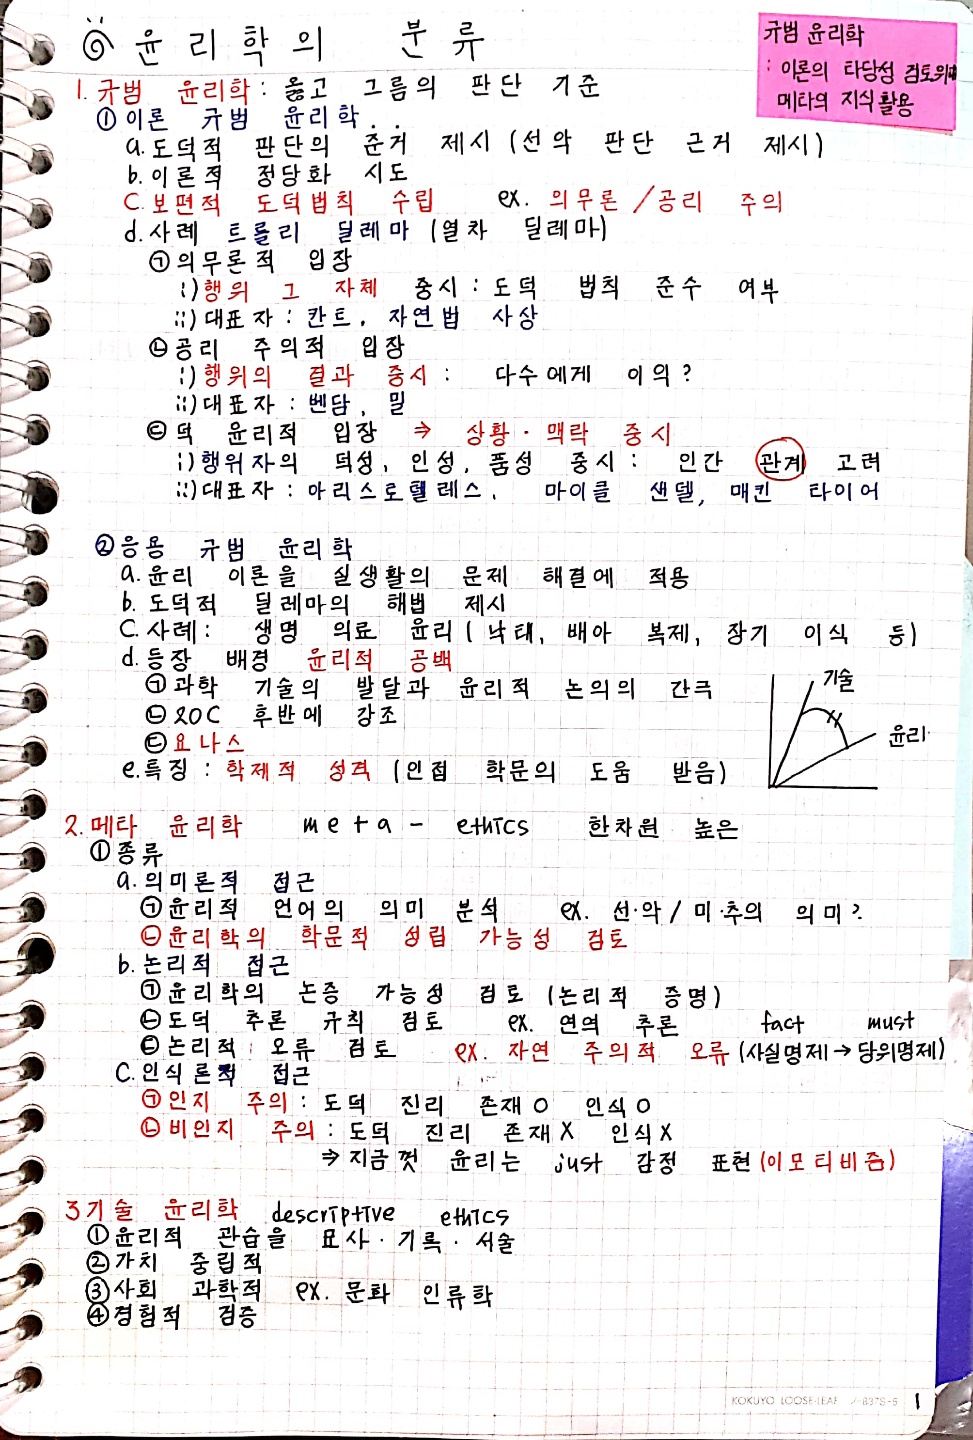 윤리학의 분류
규범 윤리학
: 이론의 타당성 검토위해
메타의 지식 활용
1. 규범 윤리학 : 옳고 그름의 판단 기준
① 이론 규범 윤리학
a. 도덕적 판단의 준거 제시 (선악 판단 근거 제시)
b. 이론적 정당화 시도
C. 보편적 도덕법칙 수립 ex. 의무론 / 공리 주의
d. 사례 트롤리 딜레마 (열차 딜레마)
㉠ 의무론적 입장
i) 행위 그 자체 중시 : 도덕 법칙 준수 여부
ii) 대표자 : 칸트, 자연법 사상
㉡ 공리 주의적 입장
i) 행위의 결과 중시 : 다수에게 이익?
ii) 대표자 : 벤담, 밀
㉢ 덕 윤리적 입장 ⇒ 상황·맥락 중시
i) 행위자의 덕성, 인성, 품성 중시 : 인간 관계 고려
ii) 대표자 : 아리스토텔레스, 마이클 샌델, 매킨 타이어
② 응용 규범 윤리학
a. 윤리 이론을 실생활의 문제 해결에 적용
b. 도덕적 딜레마의 해법 제시
C. 사례 : 생명 의료 윤리 (낙태, 배아 복제, 장기 이식 등)
d. 등장 배경 윤리적 공백
㉠ 과학 기술의 발달과 윤리적 논의의 간극
㉡ 20C 후반에 강조
㉢ 요나스
e. 특징 : 학제적 성격 (인접 학문의 도움 받음)
기술
윤리
2. 메타 윤리학 meta - ethics 한차원 높은
① 종류
a. 의미론적 접근
㉠ 윤리적 언어의 의미 분석 ex. 선·악 / 미·추의 의미?
㉡ 윤리학의 학문적 성립 가능성 검토
b. 논리적 접근
㉠ 윤리학의 논증 가능성 검토 (논리적 증명)
㉡ 도덕 추론 규칙 검토 ex. 연역 추론 fact must
㉢ 논리적 오류 검토 ex. 자연 주의적 오류 (사실명제 → 당위명제)
C. 인식론적 접근
㉠ 인지 주의 : 도덕 진리 존재 O 인식 O
㉡ 비인지 주의 : 도덕 진리 존재 X 인식 X
⇒ 지금껏 윤리는 just 감정 표현 (이모티비즘)
3 기술 윤리학 descriptive ethics
① 윤리적 관습을 묘사·기록·서술
② 가치 중립적
③ 사회 과학적 ex. 문화 인류학
④ 경험적 검증
KOKUYO LOOSE-LEAF ノ-837S-5 1